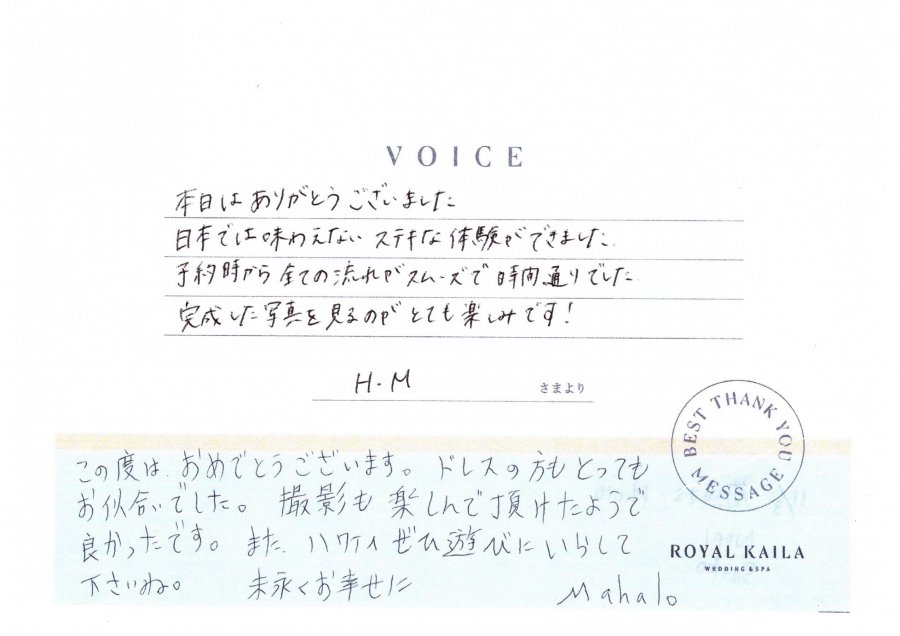 VOICE
本日はありがとうございました
日本では味わえない ステキな体験ができました.
予約時から全ての流れがスムーズで時間通りでした.
完成した写真を見るのがとても楽しみです!
H.M さまより
BEST THANK YOU MESSAGE
この度は、おめでとうございます。ドレスの方もとっても
お似合いでした。撮影も楽しんで頂けたようで
良かったです。また、ハワイイぜひ遊びにいらして
下さいね。 末永くお幸せに Mahalo。
ROYAL KAILA
WEDDING & SPA